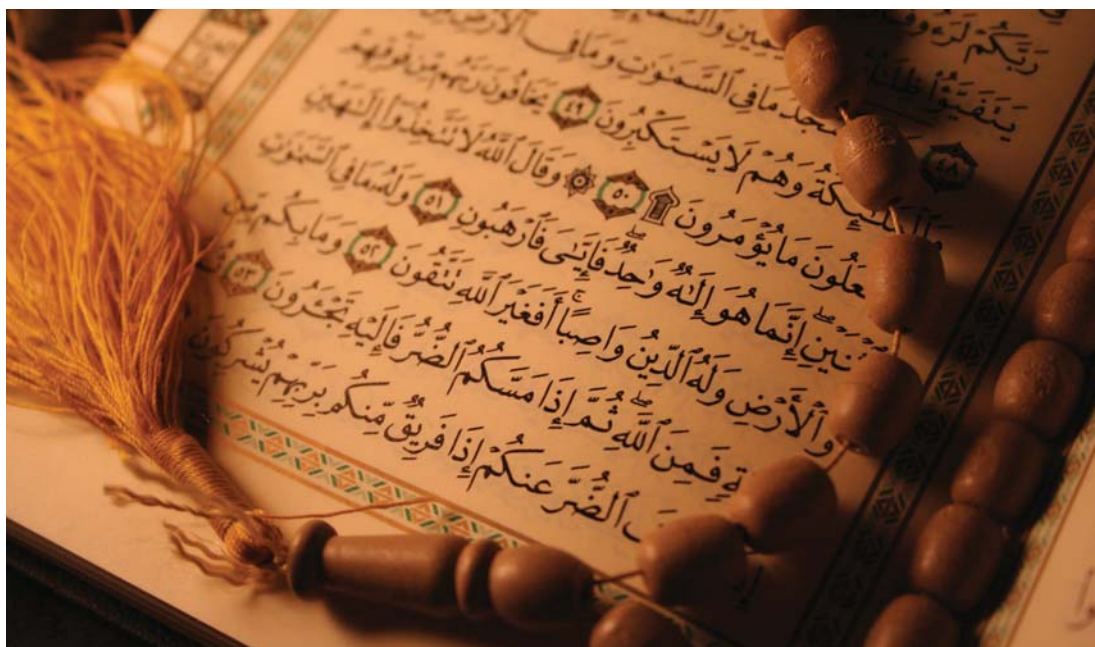 رَبَّكُمْ
يَتَفَيَّؤُا
٤٨ مَا فِي ٱلسَّمَٰوَٰتِ وَمَا فِي ٱلْأَرْضِ
وَهُمْ لَا يَسْتَكْبِرُونَ ٤٩ يَخَافُونَ رَبَّهُم مِّن فَوْقِهِمْ
مَا يُؤْمَرُونَ ۩ ٥٠ ۞ وَقَالَ ٱللَّهُ لَا تَتَّخِذُوٓا۟ إِلَٰهَيْنِ
إِنَّمَا هُوَ إِلَٰهٌ وَٰحِدٌ ۖ فَإِيَّٰىَ فَٱرْهَبُونِ ٥١ وَلَهُۥ مَا فِى ٱلسَّمَٰوَٰتِ
وَٱلْأَرْضِ وَلَهُ ٱلدِّينُ وَاصِبًا ۚ أَفَغَيْرَ ٱللَّهِ تَتَّقُونَ ٥٢ وَمَا بِكُم مِّن
فَمِنَ ٱللَّهِ ۖ ثُمَّ إِذَا مَسَّكُمُ ٱلضُّرُّ فَإِلَيْهِ تَجْـَٔرُونَ ٥٣
ٱلضُّرَّ عَنكُمْ إِذَا فَرِيقٌ مِّنكُم بِرَبِّهِمْ يُشْرِكُونَ